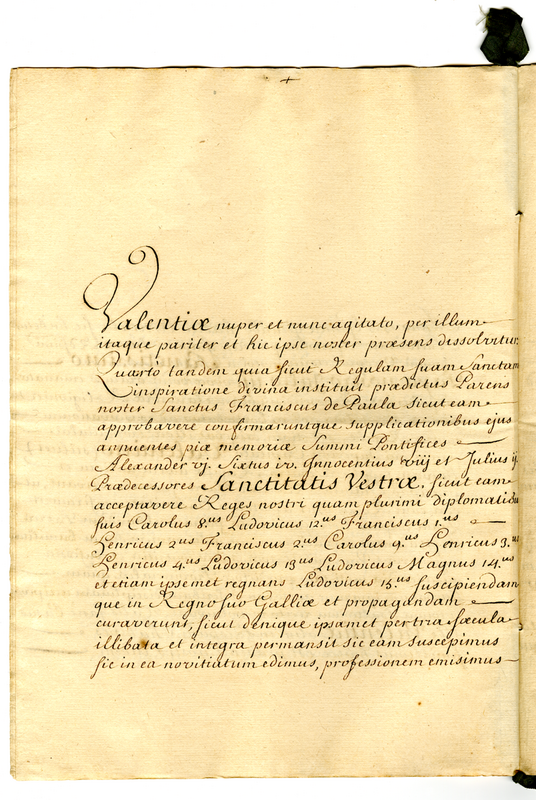 Valentiæ nuper et nunc agitato, per illum
itaque pariter et hic ipse noster præsens dessolvitur.
Quarto tandem quia sicut Regulam suam Sanctam
inspiratione divina instituit prædictus Parens
noster Sanctus Franciscus de Paula sicut eam
approbavere confirmaruntque supplicationibus ejus
annuentes piæ memoriæ Summi Pontifices
Alexander vj. Sixtus iv. Innocentius viij et Julius ij.
Prædecessores Sanctitatis Vestræ, sicut eam
acceptavere Reges nostri quam plurimi diplomatibus
suis Carolus 8.us Ludovicus 12.us Franciscus 1.us
Henricus 2.us Franciscus 2.us Carolus 9.us Henricus 3.us
Henricus 4.us Ludovicus 13.us Ludovicus Magnus 14.us
et etiam ipsemet regnans Ludovicus 15.us suscipiendam
que in Regno suo Galliæ et propagandam
curaverunt, sicut denique ipsamet per tria sæcula
illibata et integra permansit sic eam suscepimus
sic in ea novitiatum edimus, professionem emisimus